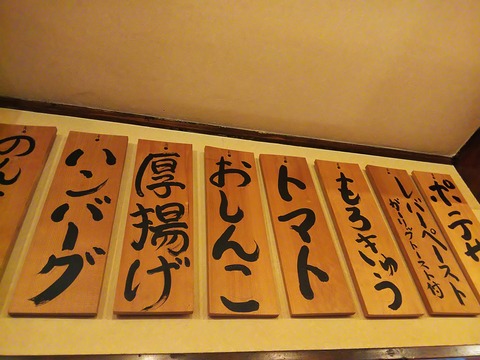 ポテサ
レバーペースト
ガーリックトースト付
もろきゅう
トマト
おしんこ
厚揚げ
ハンバーグ
のん